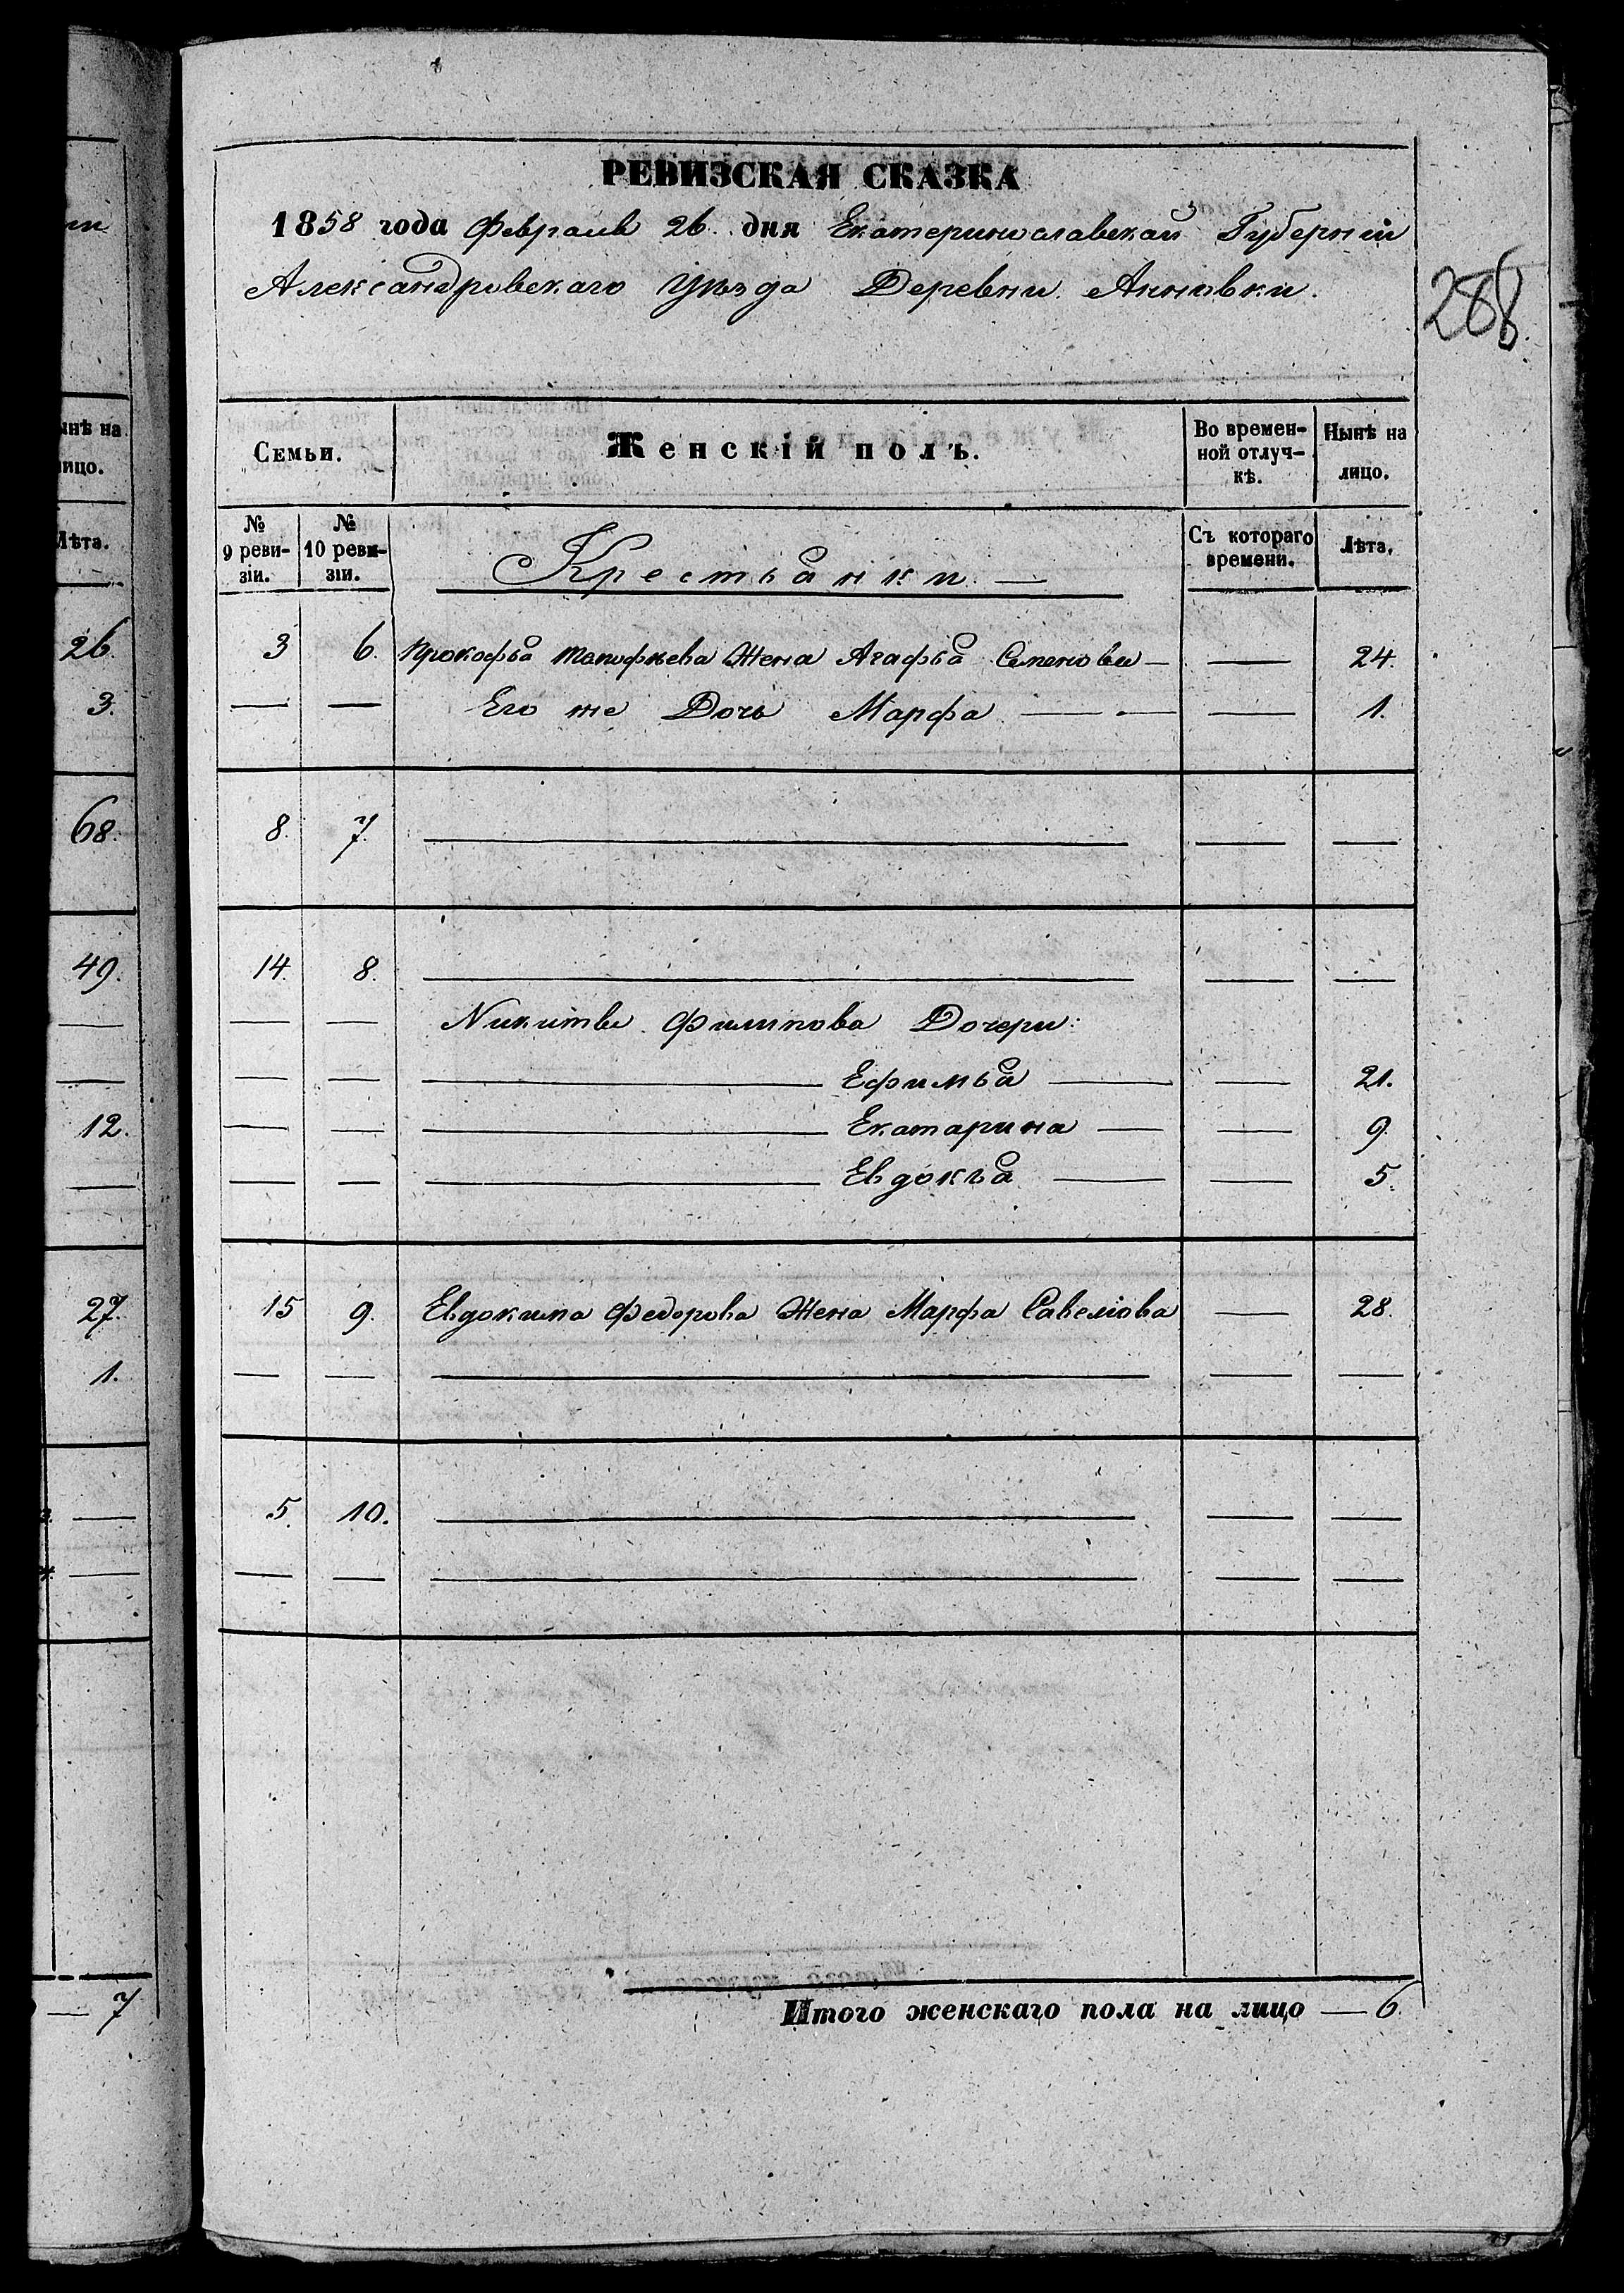 РЕВИЗСКАЯ СКАЗКА
1858 года Февраля 26 дня Екатеринославской Губерніи
Александровскаго Уѣзда Деревни Анновки.
288
Семьи. Женскій полъ. Во времен- Нынѣ на
ной отлуч- лицо.
кѣ.
№ № Съ котораго Лѣта.
9 реви- 10 реви- времени.
зіи. зіи.
Крестьянки —
3 6. Прокофья жена Агафья Семенова — — 24.
— — Его же Дочь Марфа — — — 1.
8. 7. — — —
14. 8. — — —
— — Никиты Филипова Дочери:
— — — Ефимья — — 21.
— — — Екатарина — — 9.
— — — Евдокья — — 5.
15 9. Евдокима Федорова Жена Марфа Савеліова — 28.
— — — — —
5. 10. — — —
— — — — —
Итого женскаго пола на лицо — 6.
ынѣ на
ицо.
Лѣта.
26.
3.
68.
49.
—
—
12.
—
27.
1.
—
—
— 7